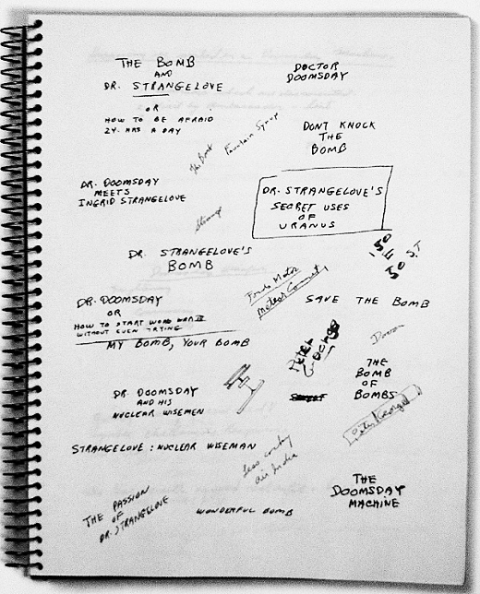 THE BOMB
AND
DR. STRANGELOVE
OR
HOW TO BE AFRAID
24 HRS A DAY
DOCTOR
DOOMSDAY
DON'T KNOCK
THE
BOMB
DR. DOOMSDAY
MEETS
INGRID STRANGELOVE
DR. STRANGELOVE'S
SECRET USES
OF
URANUS
Strange
DR. STRANGELOVE'S
BOMB
DR. DOOMSDAY
OR
HOW TO START WORLD WAR III
WITHOUT EVEN TRYING
SAVE THE BOMB
MY BOMB, YOUR BOMB
PETER
GEORGE
THE
BOMB
OF
BOMBS
DR. DOOMSDAY
AND HIS
NUCLEAR WISEMEN
Peter George
STRANGELOVE: NUCLEAR WISEMAN
THE PASSION
OF
DR. STRANGELOVE
WONDERFUL BOMB
THE
DOOMSDAY
MACHINE